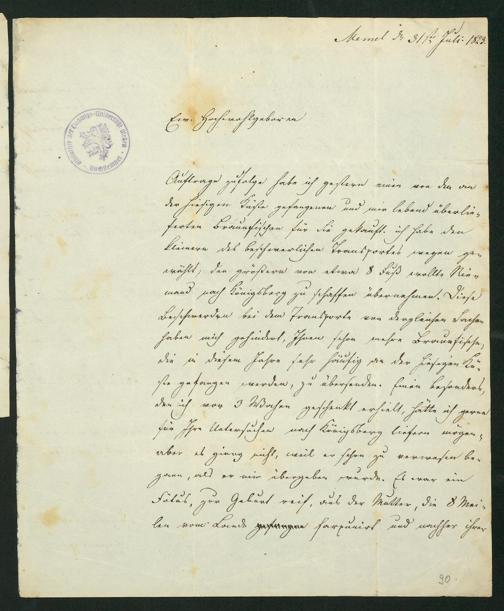 Memel d. 31ten Juli 1823.
Ew. Hochwohlgeboren
Auftrage zufolge habe ich gestern einen von den an
der hiesigen Küste gefangenen und mir lebend überlie-
ferten Braunfischen für Sie gekauft. Ich habe den
kleinern des beschwerlichen Transportes wegen ge-
wählt, den größern von etwa 8 Fuß wollte Nie-
mand nach Königsberg zu schaffen übernehmen. Diese
Beschwerden bei dem Transporte von dergleichen Sachen
haben mich gehindert, Ihnen schon mehre Braunfische,
die in diesem Jahre sehr häufig an der hiesigen Kü-
ste gefangen werden, zu übersenden. Einen besonders,
den ich vor 3 Wochen geschenkt erhielt, hätte ich gerne
für Ihre Untersuchen nach Königsberg liefern mögen,
aber es ging nicht, weil er schon zu verwesen be-
gann, als er mir übergeben wurde. Es war ein
Fötus, zur Geburt reif, aus der Mutter, die 8 Mei-
len vom Lande harpunirt und nachher ihrer
90.